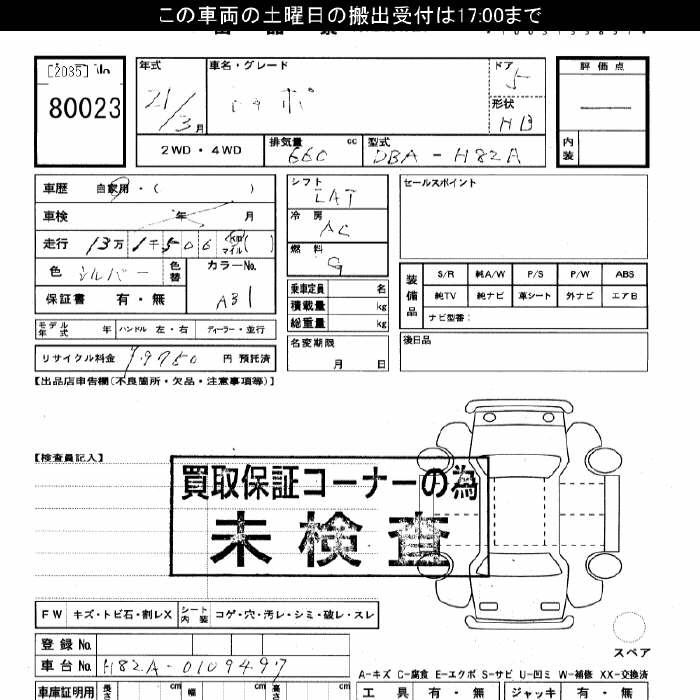 この車両の土曜日の搬出受付は17:00まで
[2035] No
80023
年式
21/3月
車名・グレード
ドア
5
形状
HB
評価点
内装
2WD・4WD
排気量 660 cc
型式 DBA-H82A
車歴 自家用・( )
車検 年 月
走行 13万1千506 km マイル( )
色 シルバー
色替
カラーNo.
A31
保証書 有・無
モデル年式 年 ハンドル 左・右 ディーラー・並行
リサイクル料金 円 預託済
シフト
LAT
冷房
AC
燃料
G
乗車定員 名
積載量 kg
総重量 kg
名変期限
月 日
セールスポイント
装備品
S/R 純A/W P/S P/W ABS
純TV 純ナビ 革シート 外ナビ エアB
ナビ型番:
後日品
【出品店申告欄(不良箇所・欠品・注意事項等)】
【検査員記入】
買取保証コーナーの為
未検査
FW キズ・トビ石・割レX シート内装 コゲ・穴・汚レ・シミ・破レ・スレ
登録 No.
車台 No. H82A-0109497
スペア
A-キズ C-腐食 E-エクボ S-サビ U-凹ミ W-補修 XX-交換済
車庫証明用 長さ cm 幅 cm 高さ cm
工具 有・無 ジャッキ 有・無